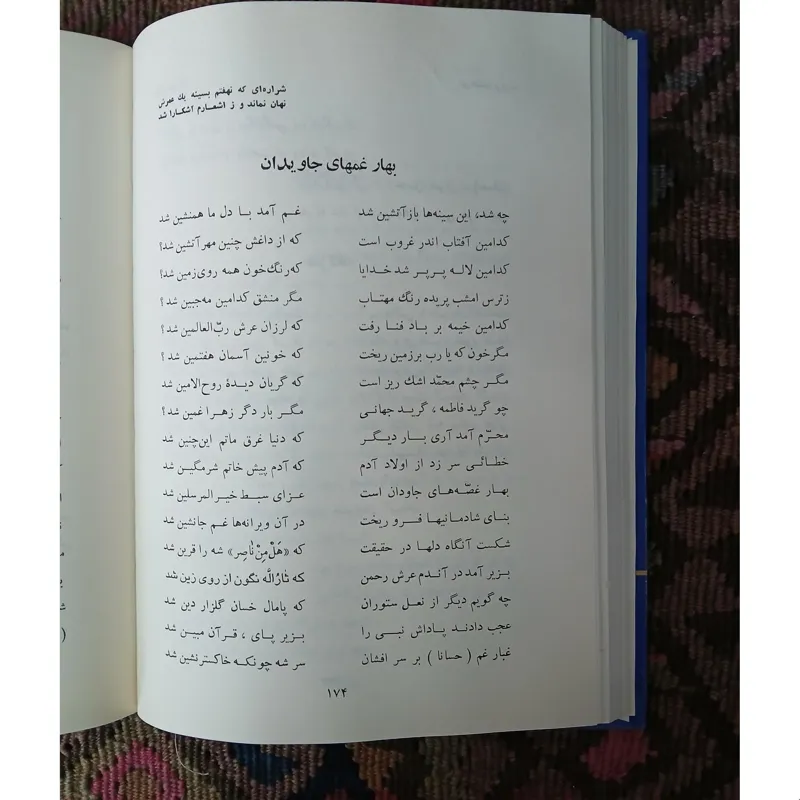 شراره‌ای که نهفتم بسینه یك عمرش
نهان نماند و ز اشعارم آشکارا شد
بهار غمهای جاویدان
چه شد، این سینه‌ها باز آتشین شد غم آمد با دل ما همنشین شد
کدامین آفتاب اندر غروب است که از داغش چنین مهر آتشین شد؟
کدامین لاله پرپر شد خدایا که رنگ خون همه روی زمین شد؟
زترس امشب پریده رنگ مهتاب مگر منشق کدامین مه‌جبین شد؟
کدامین خیمه بر باد فنا رفت که لرزان عرش ربّ‌العالمین شد؟
مگر خون که یا رب برزمین ریخت که خونین آسمان هفتمین شد؟
مگر چشم محمّد اشك ریز است که گریان دیدهٔ روح‌الامین شد
چو گرید فاطمه، گرید جهانی مگر بار دگر زهرا غمین شد؟
محرّم آمد آری بار دیگر که دنیا غرق ماتم این‌چنین شد
خطائی سر زد از اولاد آدم که آدم پیش خاتم شرمگین شد
بهار غصّه‌های جاودان است عزای سبط خیرالمرسلین شد
بنای شادمانیها فرو ریخت در آن ویرانه‌ها غم جانشین شد
شکست آنگاه دلها در حقیقت که «هَلْ مِنْ نٰاصِر» شه را قرین شد
بزیر آمد در آندم عرش رحمن که ثاراللّه نگون از روی زین شد
چه گویم دیگر از نعل ستوران که پامال خسان گلزار دین شد
عجب دادند پاداش نبی را بزیر پای، قرآن مبین شد
غبار غم (حسانا) بر سر افشان سر شه چونکه خاکسترنشین شد
۱۷۴